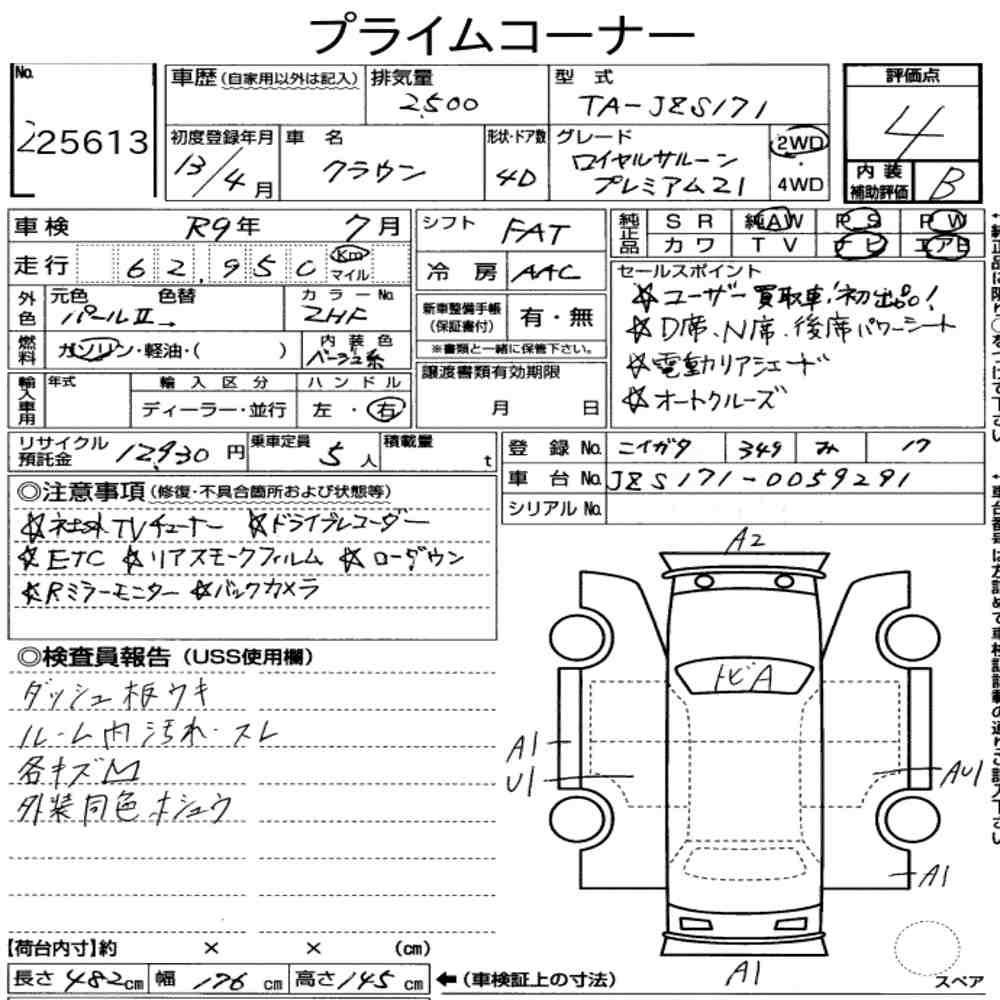 プライムコーナー
No. 225613
車歴 (自家用以外は記入)
排気量 2,500
型式 TA-JZS171
評価点 4
初度登録年月 13/4月
車名 クラウン
形状・ドア数 4D
グレード ロイヤルサルーン プレミアム21
2WD・4WD
内装補助評価 B
車検 R9年 7月
シフト FAT
純正品 SR 純AW PS PW
カワ TV ナビ エアB
走行 62,950 Km マイル
冷房 AAC
セールスポイント
☆ユーザー買取車!初出品!
☆D席、N席、後席パワーシート
☆電動リアシェード
☆オートクルーズ
外色 元色 パールⅡ→ 色替
カラーNo. 2HF
新車整備手帳(保証書付) 有・無
※書類と一緒に保管下さい。
燃料 ガソリン・軽油・( )
内装色 ベージュ系
輸入車用 年式
輸入区分 ディーラー・並行
ハンドル 左・右
譲渡書類有効期限 月 日
リサイクル預託金 12,930円
乗車定員 5人
積載量 t
登録No. ニイガタ 349 み 17
車台No. JZS171-0059291
シリアルNo.
◎注意事項 (修復・不具合箇所および状態等)
☆社外TVチューナー ☆ドライブレコーダー
☆ETC ☆リアスモークフィルム ☆ローダウン
☆Rミラーモニター ☆バックカメラ
◎検査員報告 (USS使用欄)
ダッシュ板ウキ
ルーム内汚れ・スレ
各キズM
外装同色ホシュウ
A2
トビA
A1
U1
AU1
A1
A1
スペア
【荷台内寸】約 × × (cm)
長さ 482cm 幅 176cm 高さ 145cm ←(車検証上の寸法)